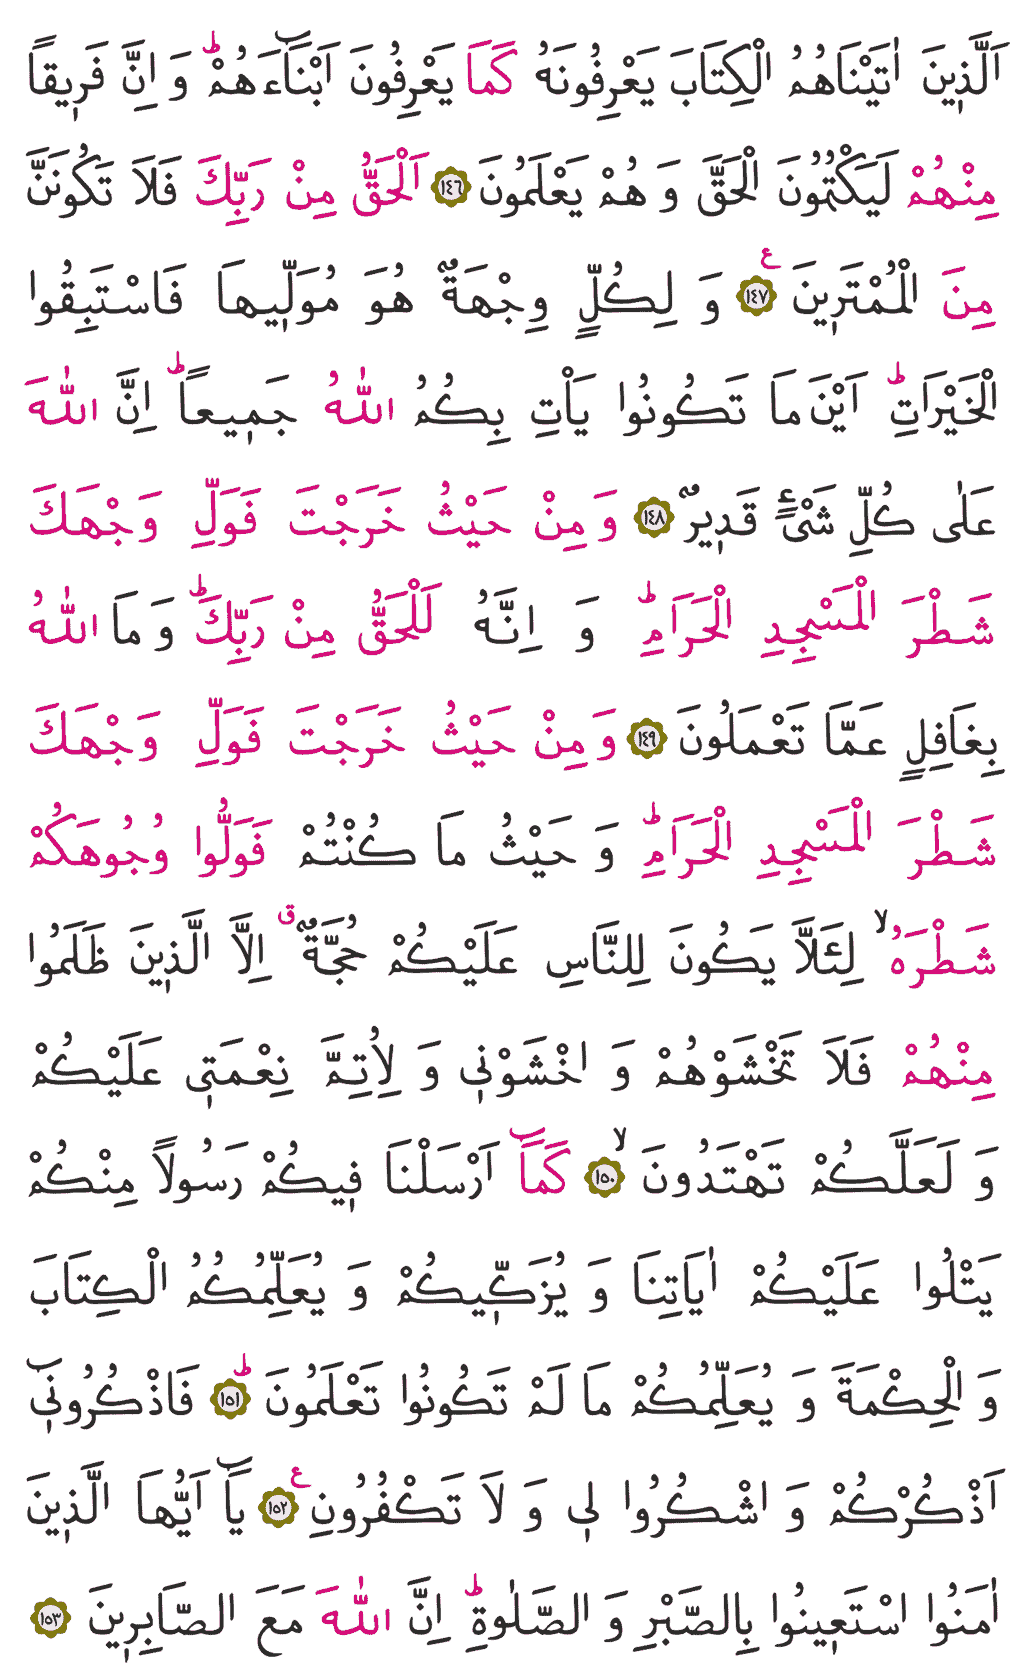 اَلَّذ۪ينَ اٰتَيْنَاهُمُ الْكِتَابَ يَعْرِفُونَهُ كَمَا يَعْرِفُونَ اَبْنَٓاءَهُمْۜ وَ اِنَّ فَر۪يقًا
مِنْهُمْ لَيَكْتُمُونَ الْحَقَّ وَ هُمْ يَعْلَمُونَ ﴿١٤٦﴾ اَلْحَقُّ مِنْ رَبِّكَ فَلَا تَكُونَنَّ
مِنَ الْمُمْتَر۪ينَ ﴿١٤٧﴾ ع وَ لِكُلٍّ وِجْهَةٌ هُوَ مُوَلّ۪يهَا فَاسْتَبِقُوا
الْخَيْرَاتِۜ اَيْنَ مَا تَكُونُوا يَاْتِ بِكُمُ اللّٰهُ جَم۪يعًاۜ اِنَّ اللّٰهَ
عَلٰى كُلِّ شَيْءٍ قَد۪يرٌ ﴿١٤٨﴾ وَ مِنْ حَيْثُ خَرَجْتَ فَوَلِّ وَجْهَكَ
شَطْرَ الْمَسْجِدِ الْحَرَامِۜ وَ اِنَّهُ لَلْحَقُّ مِنْ رَبِّكَۜ وَ مَا اللّٰهُ
بِغَافِلٍ عَمَّا تَعْمَلُونَ ﴿١٤٩﴾ وَ مِنْ حَيْثُ خَرَجْتَ فَوَلِّ وَجْهَكَ
شَطْرَ الْمَسْجِدِ الْحَرَامِۜ وَ حَيْثُ مَا كُنْتُمْ فَوَلُّوا وُجُوهَكُمْ
شَطْرَهُۙ لِئَلَّا يَكُونَ لِلنَّاسِ عَلَيْكُمْ حُجَّةٌۗ اِلَّا الَّذ۪ينَ ظَلَمُوا
مِنْهُمْ فَلَا تَخْشَوْهُمْ وَ اخْشَوْن۪ي وَ لِاُتِمَّ نِعْمَت۪ي عَلَيْكُمْ
وَ لَعَلَّكُمْ تَهْتَدُونَۙ ﴿١٥٠﴾ كَمَٓا اَرْسَلْنَا ف۪يكُمْ رَسُولًا مِنْكُمْ
يَتْلُوا عَلَيْكُمْ اٰيَاتِنَا وَ يُزَكّ۪يكُمْ وَ يُعَلِّمُكُمُ الْكِتَابَ
وَ الْحِكْمَةَ وَ يُعَلِّمُكُمْ مَا لَمْ تَكُونُوا تَعْلَمُونَۜ ﴿١٥١﴾ فَاذْكُرُون۪ٓي
اَذْكُرْكُمْ وَ اشْكُرُوا ل۪ي وَ لَا تَكْفُرُونِ ﴿١٥٢﴾ ع يَٓا اَيُّهَا الَّذ۪ينَ
اٰمَنُوا اسْتَع۪ينُوا بِالصَّبْرِ وَ الصَّلٰوةِۜ اِنَّ اللّٰهَ مَعَ الصَّابِر۪ينَ ﴿١٥٣﴾